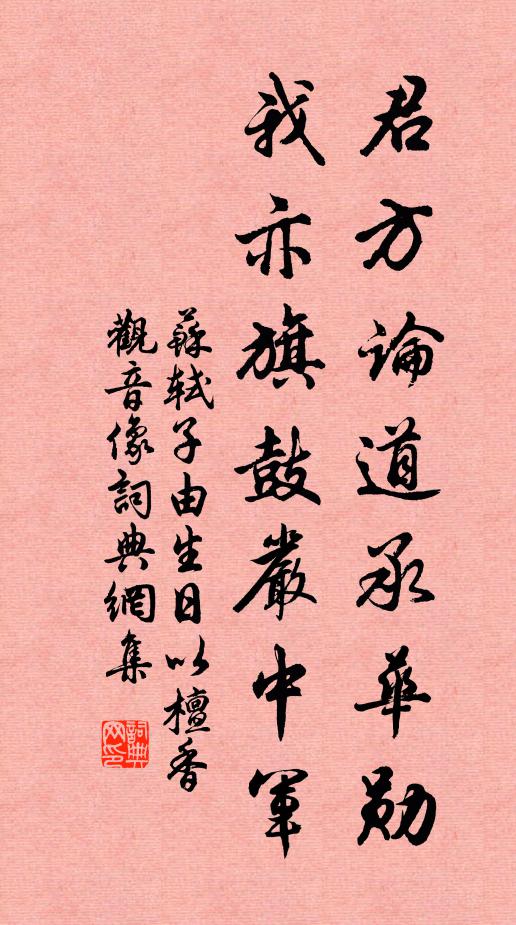 君方論道承華勛
我亦旗鼓嚴中軍
蘇軾子由生日以檀香
觀音像詞典網集
詞典网印